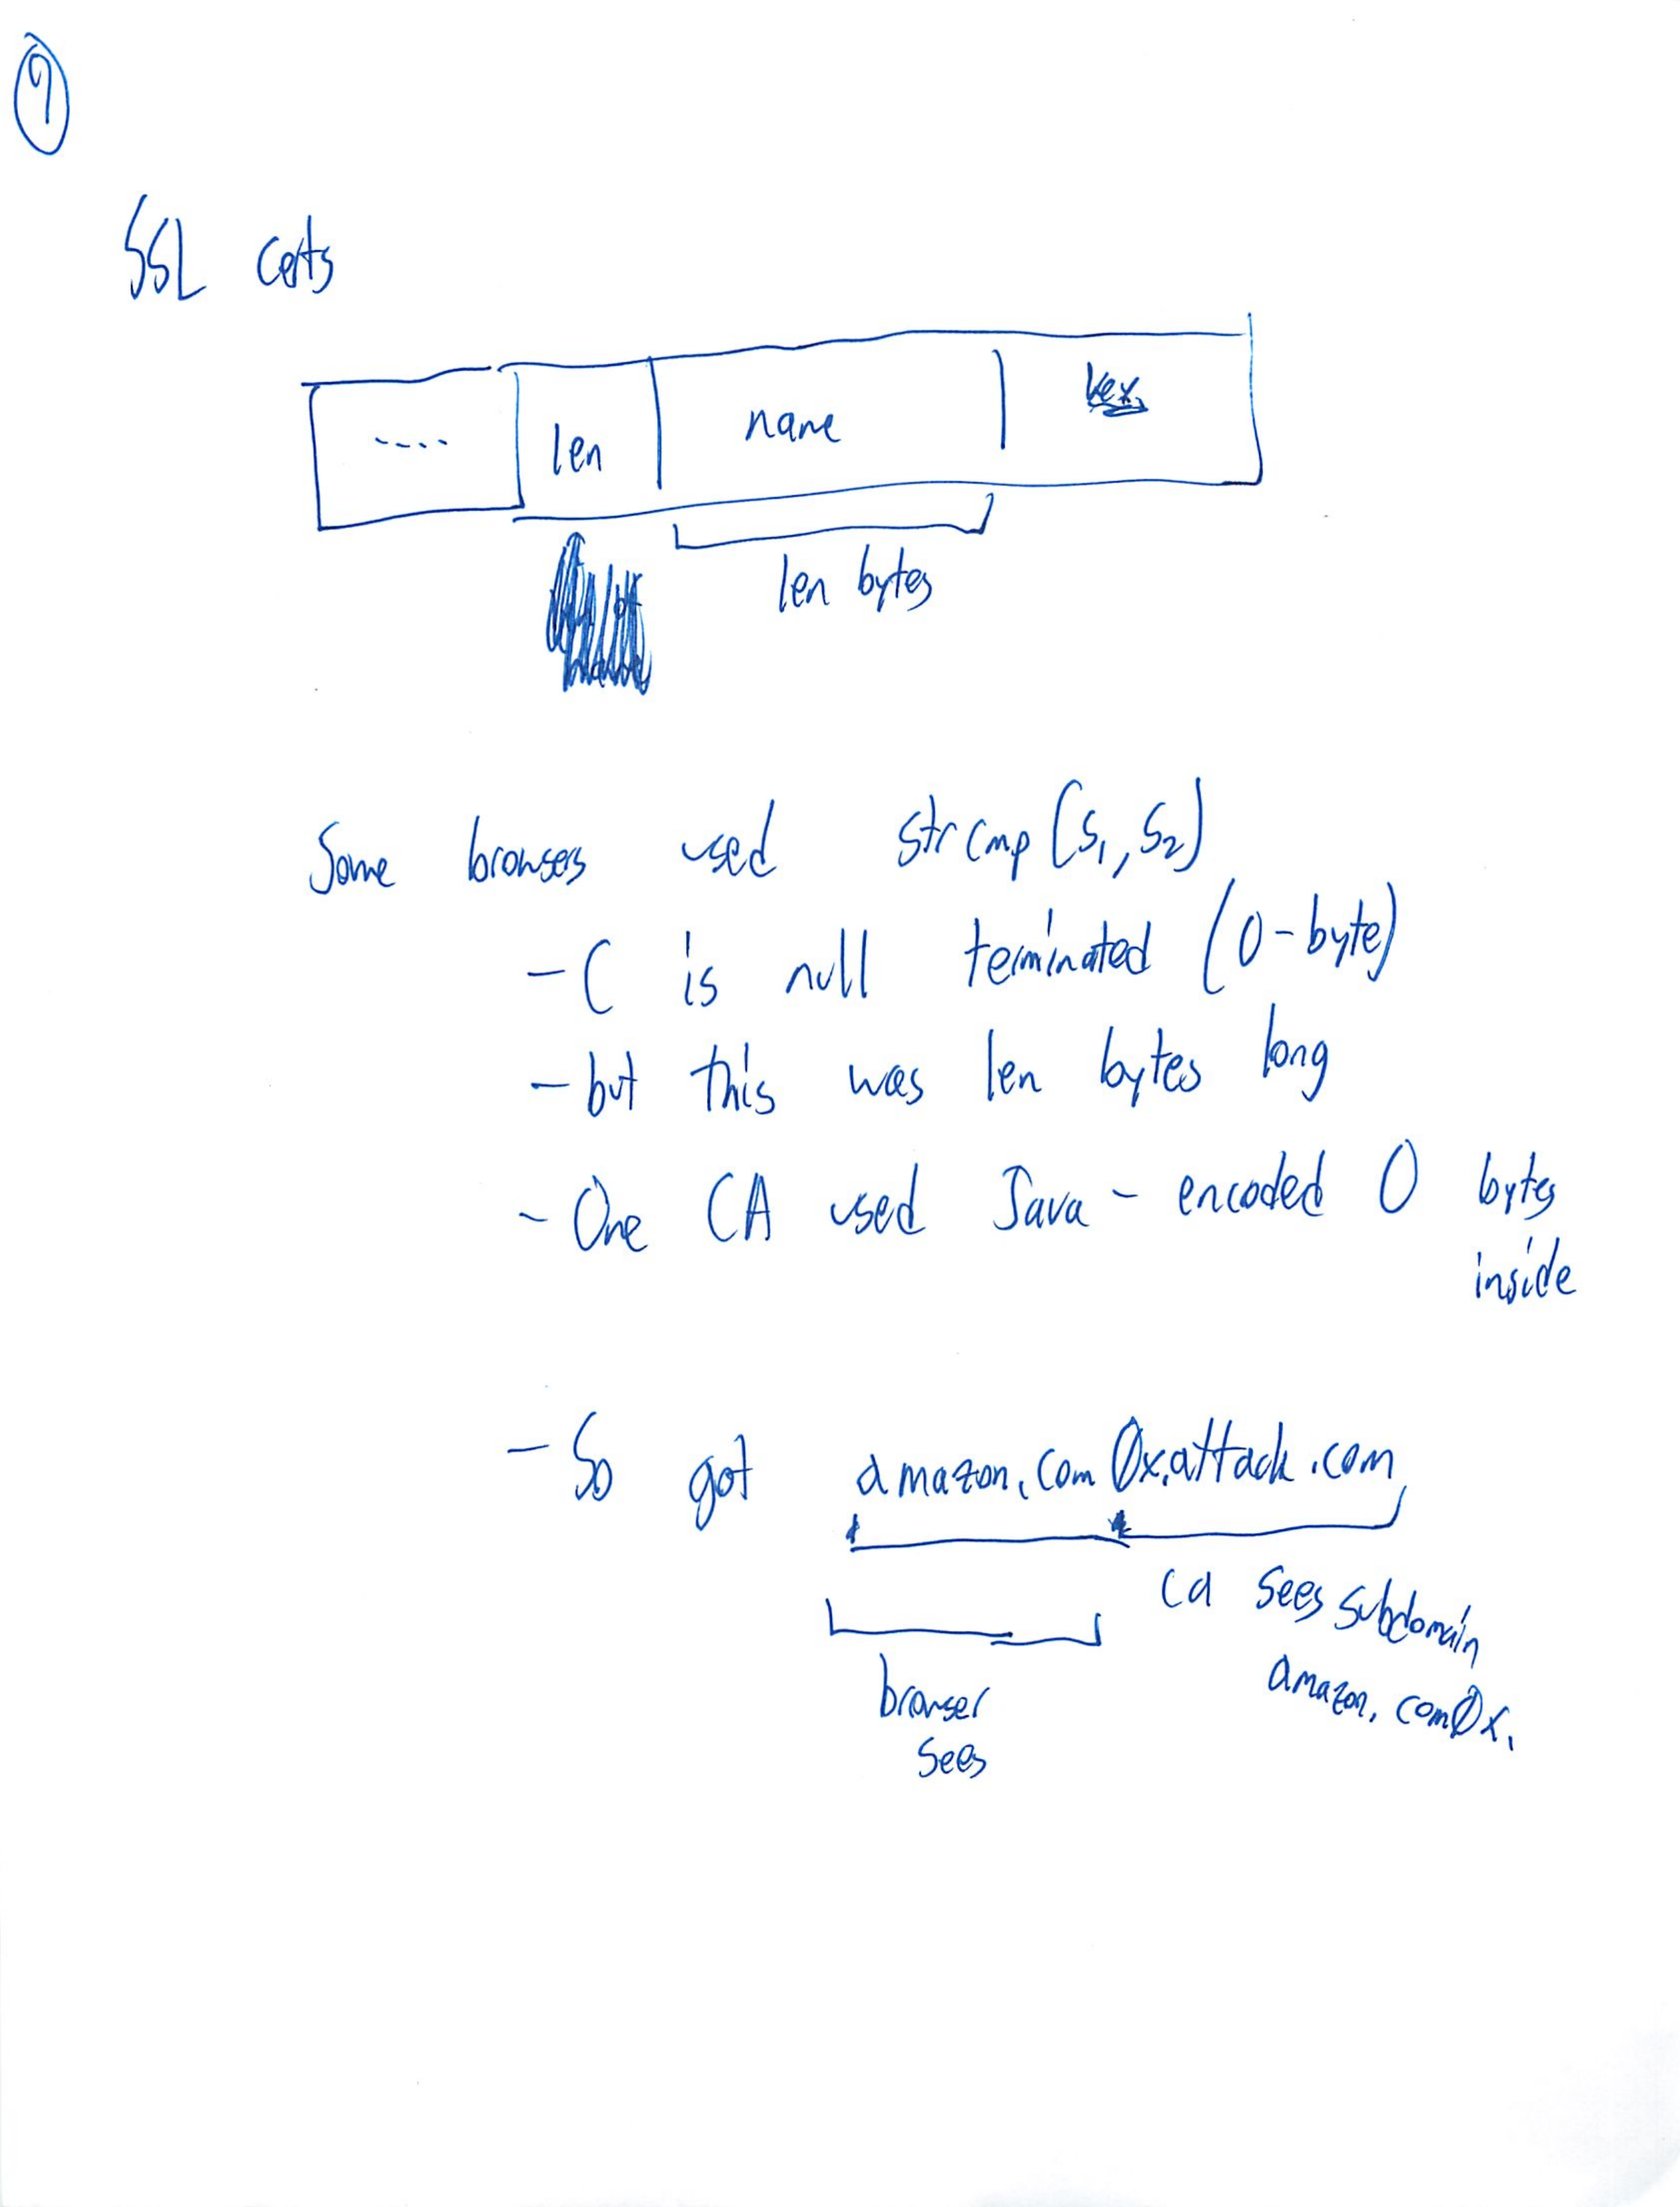 9
SSL certs
.... len name key
len bytes
Some browsers used strcmp(s₁, s₂)
- C is null terminated (0-byte)
- but this was len bytes long
- One CA used Java - encoded 0 bytes
inside
- So got amazon.com0x.attack.com
ca sees subdomain
amazon.com0x.
browser
sees